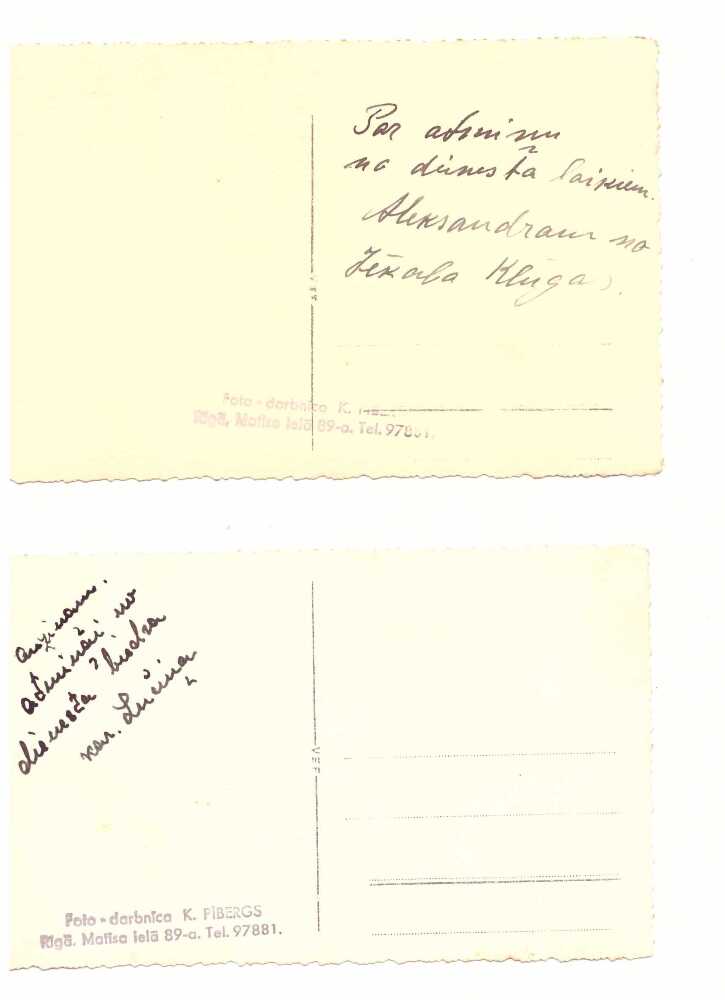 Par atmiņu
no dienesta laikiem.
Aleksandram no
Jēkaba Kļūgas.
VEF
Foto-darbnīca K.
Rīgā, Matīsa ielā 89-a. Tel. 97881.
atmiņai no
dienesta biedra
kar. Lūciņa
VEF
Foto-darbnīca K. PĪBERGS
Rīgā, Matīsa ielā 89-a. Tel. 97881.